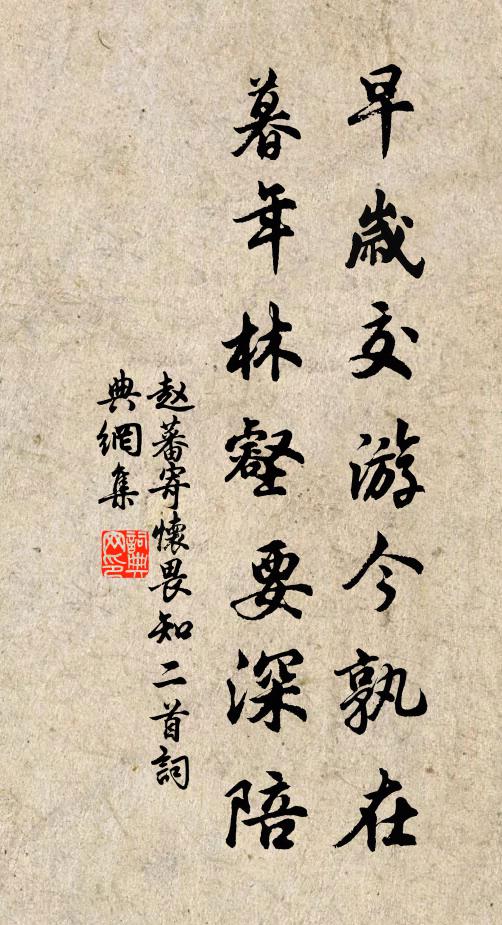 早歲交游今孰在
暮年林壑要深陪
赵蕃寄懷畏知二首詞
典網集
詞典
网印